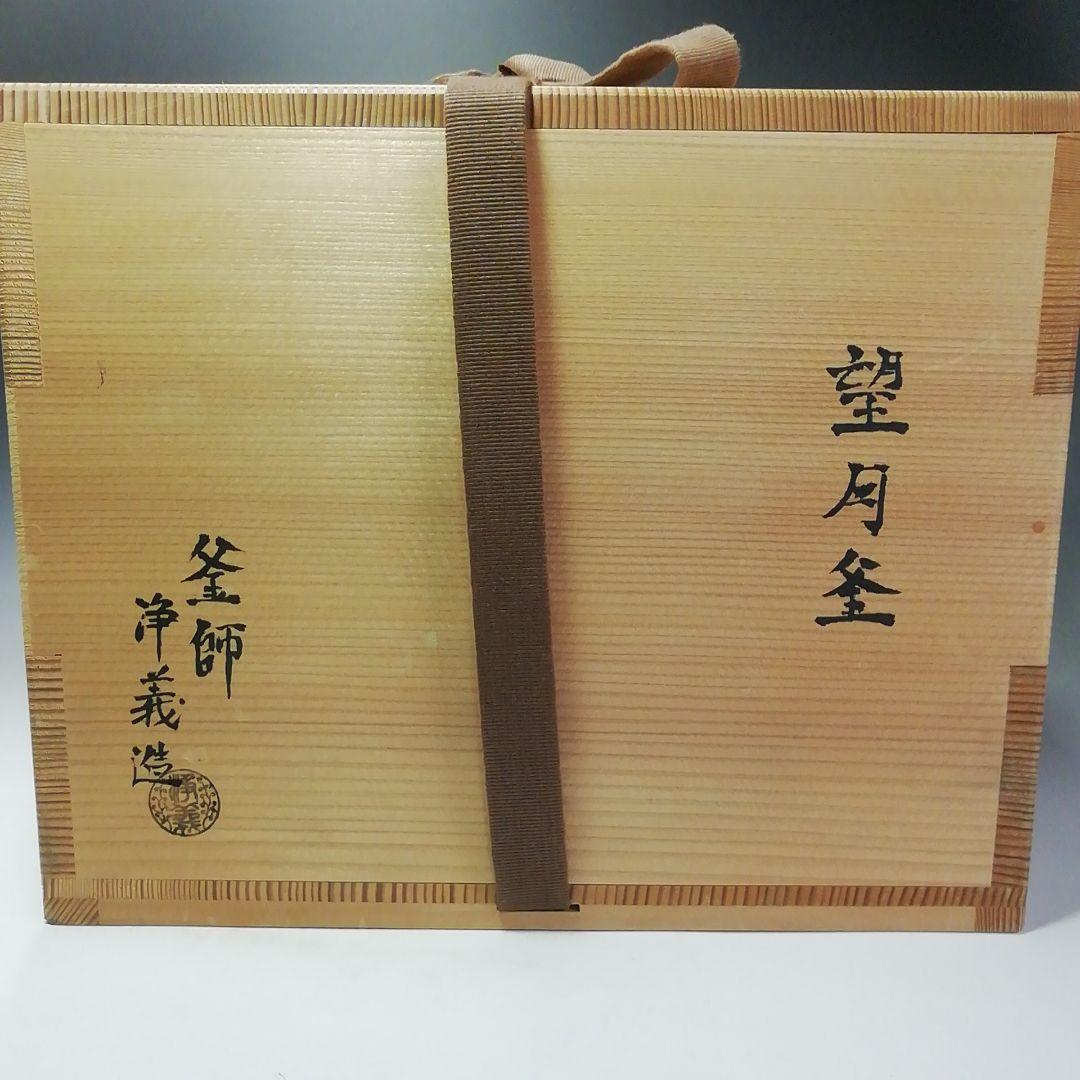 望月釜
釜師
浄義造
浄義